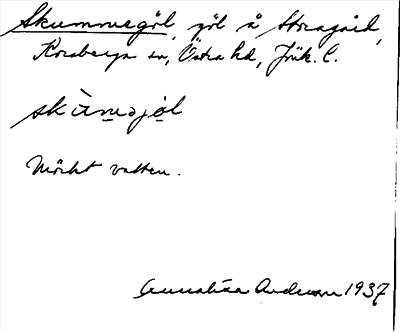 Skummegöl, göl å Storagård,
Korsberga sn, Östra hd, Jönk. l.
skùmǝjo̱l
Mörkt vatten.
Annalisa Anderson 1937